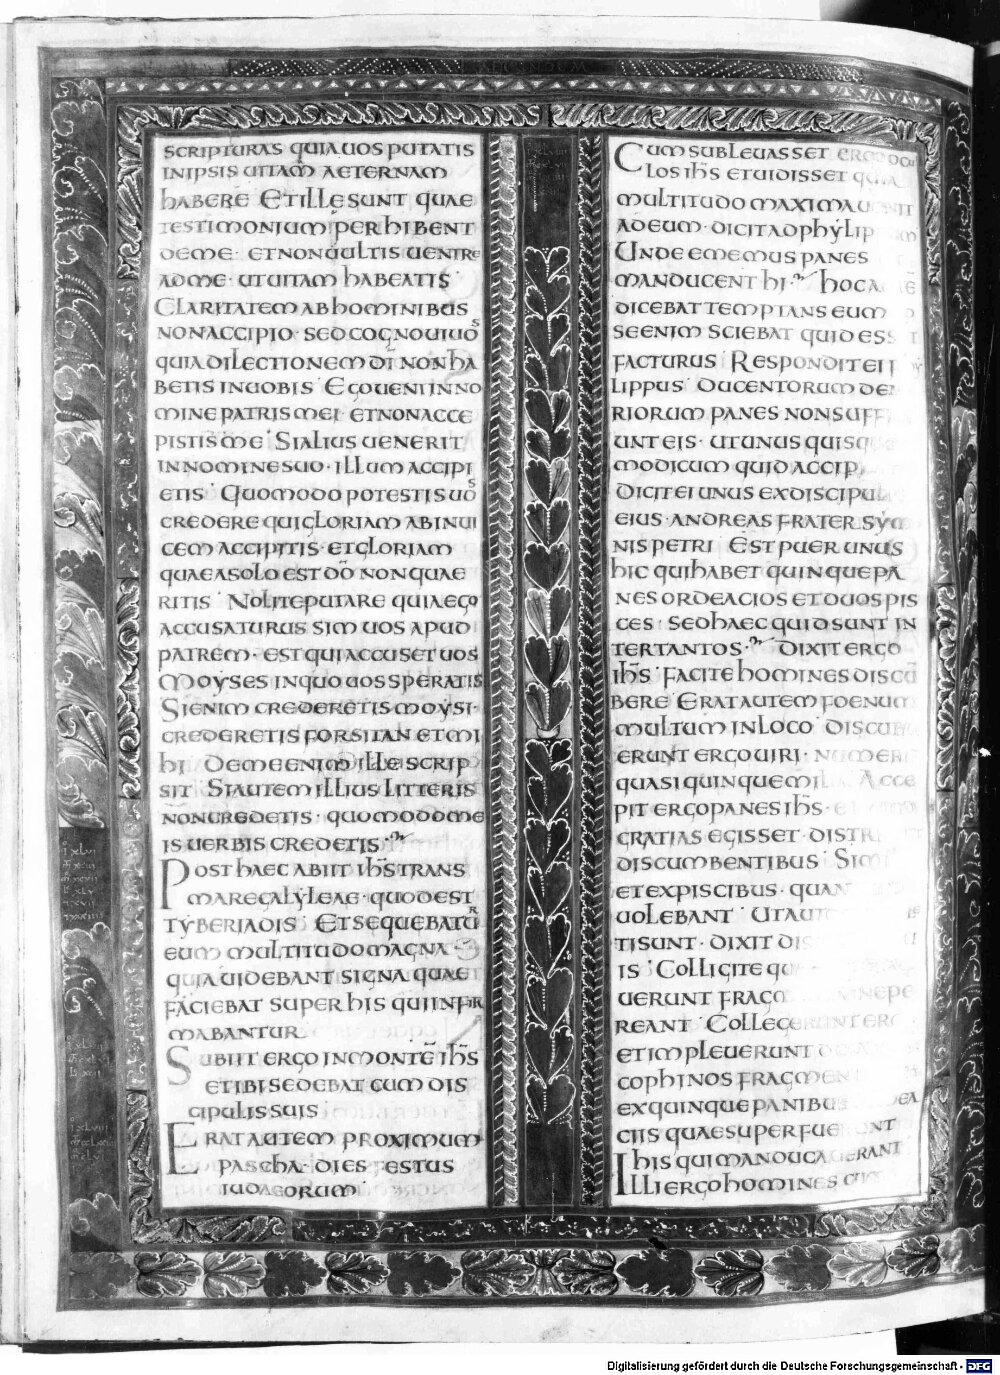 SCRIPTURAS QUIA UOS PUTATIS
IN IPSIS UITAM AETERNAM
HABERE ET ILLE SUNT QUAE
TESTIMONIUM PERHIBENT
DE ME · ET NON UULTIS UENIRE
AD ME · UT UITAM HABEATIS ·
CLARITATEM AB HOMINIBUS
NON ACCIPIO · SED COGNOUI UOS
QUIA DILECTIONEM DĪ NON HA
BETIS IN UOBIS · EGO UENI IN NO
MINE PATRIS MEI · ET NON ACCE
PISTIS ME · SI ALIUS UENERIT
IN NOMINE SUO · ILLUM ACCIPI
ETIS · QUOMODO POTESTIS UOS
CREDERE QUI GLORIAM AB INUI
CEM ACCIPITIS · ET GLORIAM
QUAE A SOLO EST DŌ NON QUAE
RITIS · NOLITE PUTARE QUIA EGO
ACCUSATURUS SIM UOS APUD
PATREM · EST QUI ACCUSET UOS
MOYSES IN QUO UOS SPERATIS
SI ENIM CREDERETIS MOYSI ·
CREDERETIS FORSITAN ET MI
HI DE ME ENIM ILLE SCRIP
SIT · SI AUTEM ILLIUS LITTERIS
NON CREDETIS · QUOMODO ME
IS UERBIS CREDETIS ·
POST HAEC ABIIT IHS̄ TRANS
MARE GALYLEAE · QUOD EST
TYBERIADIS · ET SEQUEBATUR
EUM MULTITUDO MAGNA
QUIA UIDEBANT SIGNA QUAE
FACIEBAT SUPER HIS QUI INFIR
MABANTUR
SUBIIT ERGO IN MONTĒ IHS̄
ET IBI SEDEBAT CUM DIS
CIPULIS SUIS ·
ERAT AUTEM PROXIMUM
PASCHA · DIES FESTUS
IUDAEORUM ·
CUM SUBLEUASSET ERGO OCU
LOS IHS̄ ET UIDISSET QUIA
MULTITUDO MAXIMA UENIT
AD EUM · DICIT AD PHYLIP
UNDE EMEMUS PANES
MANDUCENT HI · HOC A
DICEBAT TEMPTANS EUM
SE ENIM SCIEBAT QUID ESSET
FACTURUS · RESPONDIT EI
LIPPUS · DUCENTORUM DE
RIORUM PANES NON SUFF
UNT EIS · UT UNUS QUISQUE
MODICUM QUID ACCIP
DICIT EI UNUS EX DISCIPUL
EIUS · ANDREAS FRATER SYM
NIS PETRI · EST PUER UNUS
HIC QUI HABET QUINQUE PA
NES ORDEACIOS ET DUOS PIS
CES · SED HAEC QUID SUNT IN
TER TANTOS · DIXIT ERGO
IHS̄ · FACITE HOMINES DISCŪ
BERE · ERAT AUTEM FOENUM
MULTUM IN LOCO · DISCUBU
ERUNT ERGO UIRI · NUMERO
QUASI QUINQUE MIL ACCE
PIT ERGO PANES IHS̄ ·
GRATIAS EGISSET · DISTRI
DISCUMBENTIBUS · SIMI
ET EX PISCIBUS · QUAN
UOLEBANT · UT AUT
TI SUNT · DIXIT DIS
IS · COLLIGITE QU
UERUNT FRAGM NE PE
REANT · COLLEGERUNT ERG
ET IMPLEUERUNT D
COPHINOS FRAGMEN
EX QUINQUE PANIBUS DEA
CIIS QUAE SUPERFUERUNT
HIS QUI MANDUCAUERANT
ILLI ERGO HOMINES CUM
Digitalisierung gefördert durch die Deutsche Forschungsgemeinschaft - DFG